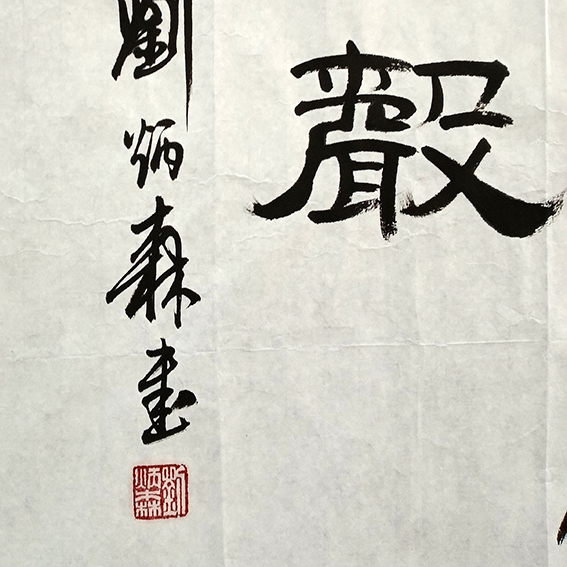 聲
劉炳森書
劉炳森